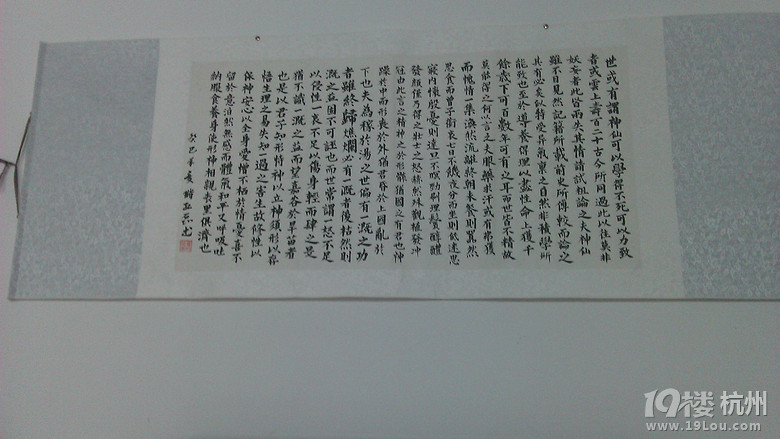 世或有謂神仙可以學得不死可以力致
者或云上壽百二十古今所同過此以往莫非
妖妄者此皆兩失其情請試粗論之夫神仙
雖不目見然記籍所載前史所傳較而論之
其有必矣似特受異氣稟之自然非積學所
能致也至於導養得理以盡性命上獲千
餘歲下可百數年可有之耳而世皆不精故
莫能得之何以言之夫服藥求汗或有弗獲
而愧情一集渙然流離終朝未餐則囂然
思食而曾子銜哀七日不飢夜分而坐則低迷思
寢內懷殷憂則達旦不瞑勁刷理鬢醇醴
發顏僅乃得之壯士之怒赫然殊觀植發沖
冠由此言之精神之於形骸猶國之有君也神
躁於中而形喪於外猶君昏於上國亂於
下也夫為稼於湯之世偏有一溉之功
者雖終歸燋爛必有一溉者後枯然則
溉之益固不可誣也而世常謂一怒不足
以侵性一哀不足以傷身輕而肆之是
猶不識一溉之益而望嘉谷於旱苗者
也是以君子知形恃神以立神須形以存
悟生理之易失知一過之害生故修性以
保神安心以全身愛憎不棲於情憂喜不
留於意泊然無感而體氣和平又呼吸吐
納服食養身使形神相親表里俱濟也
癸巳年夏
19楼 杭州
www.19Lou.com